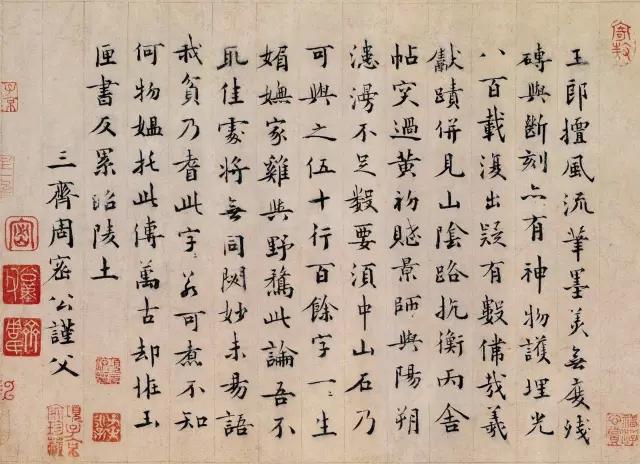 王郎擅風流筆墨美無度殘
磚與斷刻亦有神物護埋光
八百載復出疑有數備哉羲
獻蹟併見山陰路抗衡兩舍
帖突過黃初賦景師與陽朔
漶漫不足數要須中山石乃
可與之伍十行百餘字一一生
媚嫵家雞與野鶩此論吾不
取佳處將無同閟妙未易語
我貧乃耆此字々若可煮不知
何物媼托此傳萬古却恠玉
匣書反累昭陵土
三齊周密公謹父